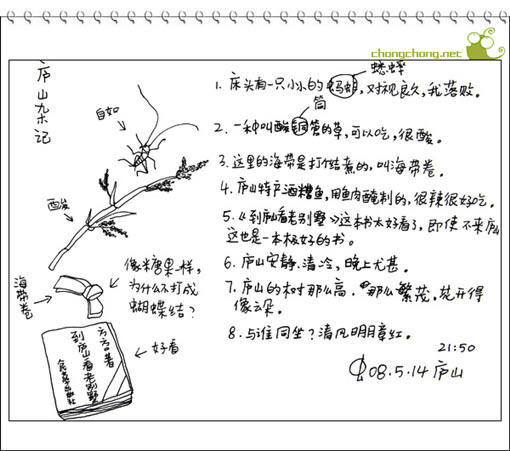 chongchong.net
庐山杂记
自如
酸酸
海带卷
像糖果一样,
为什么不打成
蝴蝶结?
方方著
到庐山看老别墅
好看
蟋蟀
1. 床头有一只小小的蚂蚱,对视良久,我落败。
筒
2. 一种叫酸铜管的草,可以吃,很酸。
3. 这里的海带是打个结煮的,叫海带卷。
4. 庐山特产酒糟鱼,用鱼肉腌制的,很辣很好吃。
5. 《到庐山看老别墅》这本书太好看了,即使不来庐山
这也是一本极好的书。
6. 庐山安静.清冷,晚上尤甚。
7. 庐山的树那么高.那么繁茂.花开得
像云朵。
8. 与谁同坐?清风明月童红。
21:50
08.5.14 庐山